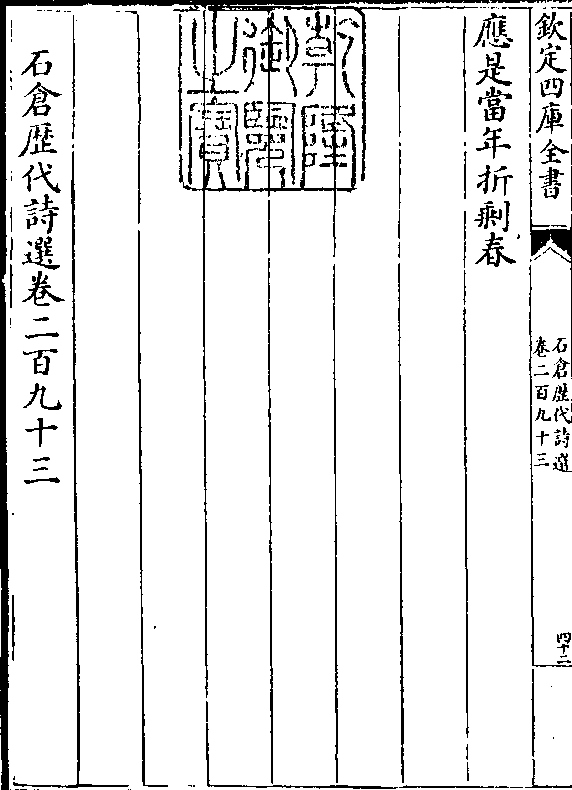 欽定四庫全書
石倉歷代詩選
卷二百九十三
四十二
應是當年折剩春
乾隆
御覽
之寶
石倉歷代詩選卷二百九十三